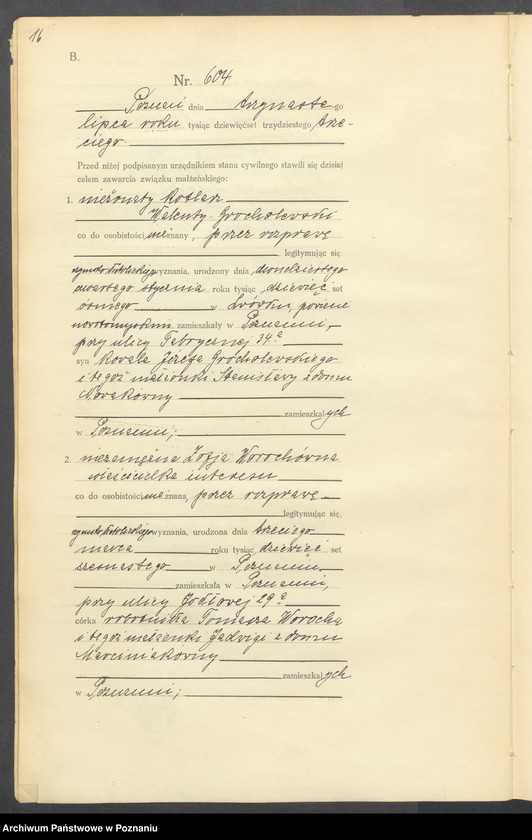 16
B.
Nr. 604
Poznań dnia trzynaste go
lipca roku tysiąc dziewięćset trzydziestego trze-
ciego
Przed niżej podpisanym urzędnikiem stanu cywilnego stawili się dzisiaj
celem zawarcia związku małżeńskiego:
1. nieżonaty kotlarz
Walenty Grocholewski
co do osobistości nieznany, przez rozprawę
legitymując się,
rzymsko katolickiego wyznania, urodzony dnia dwudziestego
czwartego stycznia roku tysiąc dziewięć set
ósmego w Lwówku, powiecie
nowotomyskim zamieszkały w Poznaniu,
przy ulicy Fabrycznej 34a
syn kowala Józefa Grocholewskiego
i tegoż małżonki Stanisławy z domu
Nowakówny
zamieszkał ych
w Poznaniu;
2. niezamężna Zofja Worochówna
właścicielka interesu
co do osobistości nieznana, przez rozprawę
legitymując się,
rzymsko katolickiego wyznania, urodzona dnia trzeciego
marca roku tysiąc dziewięć set
szesnastego w Poznaniu
zamieszkała w Poznaniu,
przy ulicy Jodłowej 29a
córka robotnika Tomasza Worocha
i tegoż małżonki Jadwigi z domu
Marciniakówny
zamieszkał ych
w Poznaniu;
Archiwum Państwowe w Poznaniu
szukajwarchiwach.gov.pl